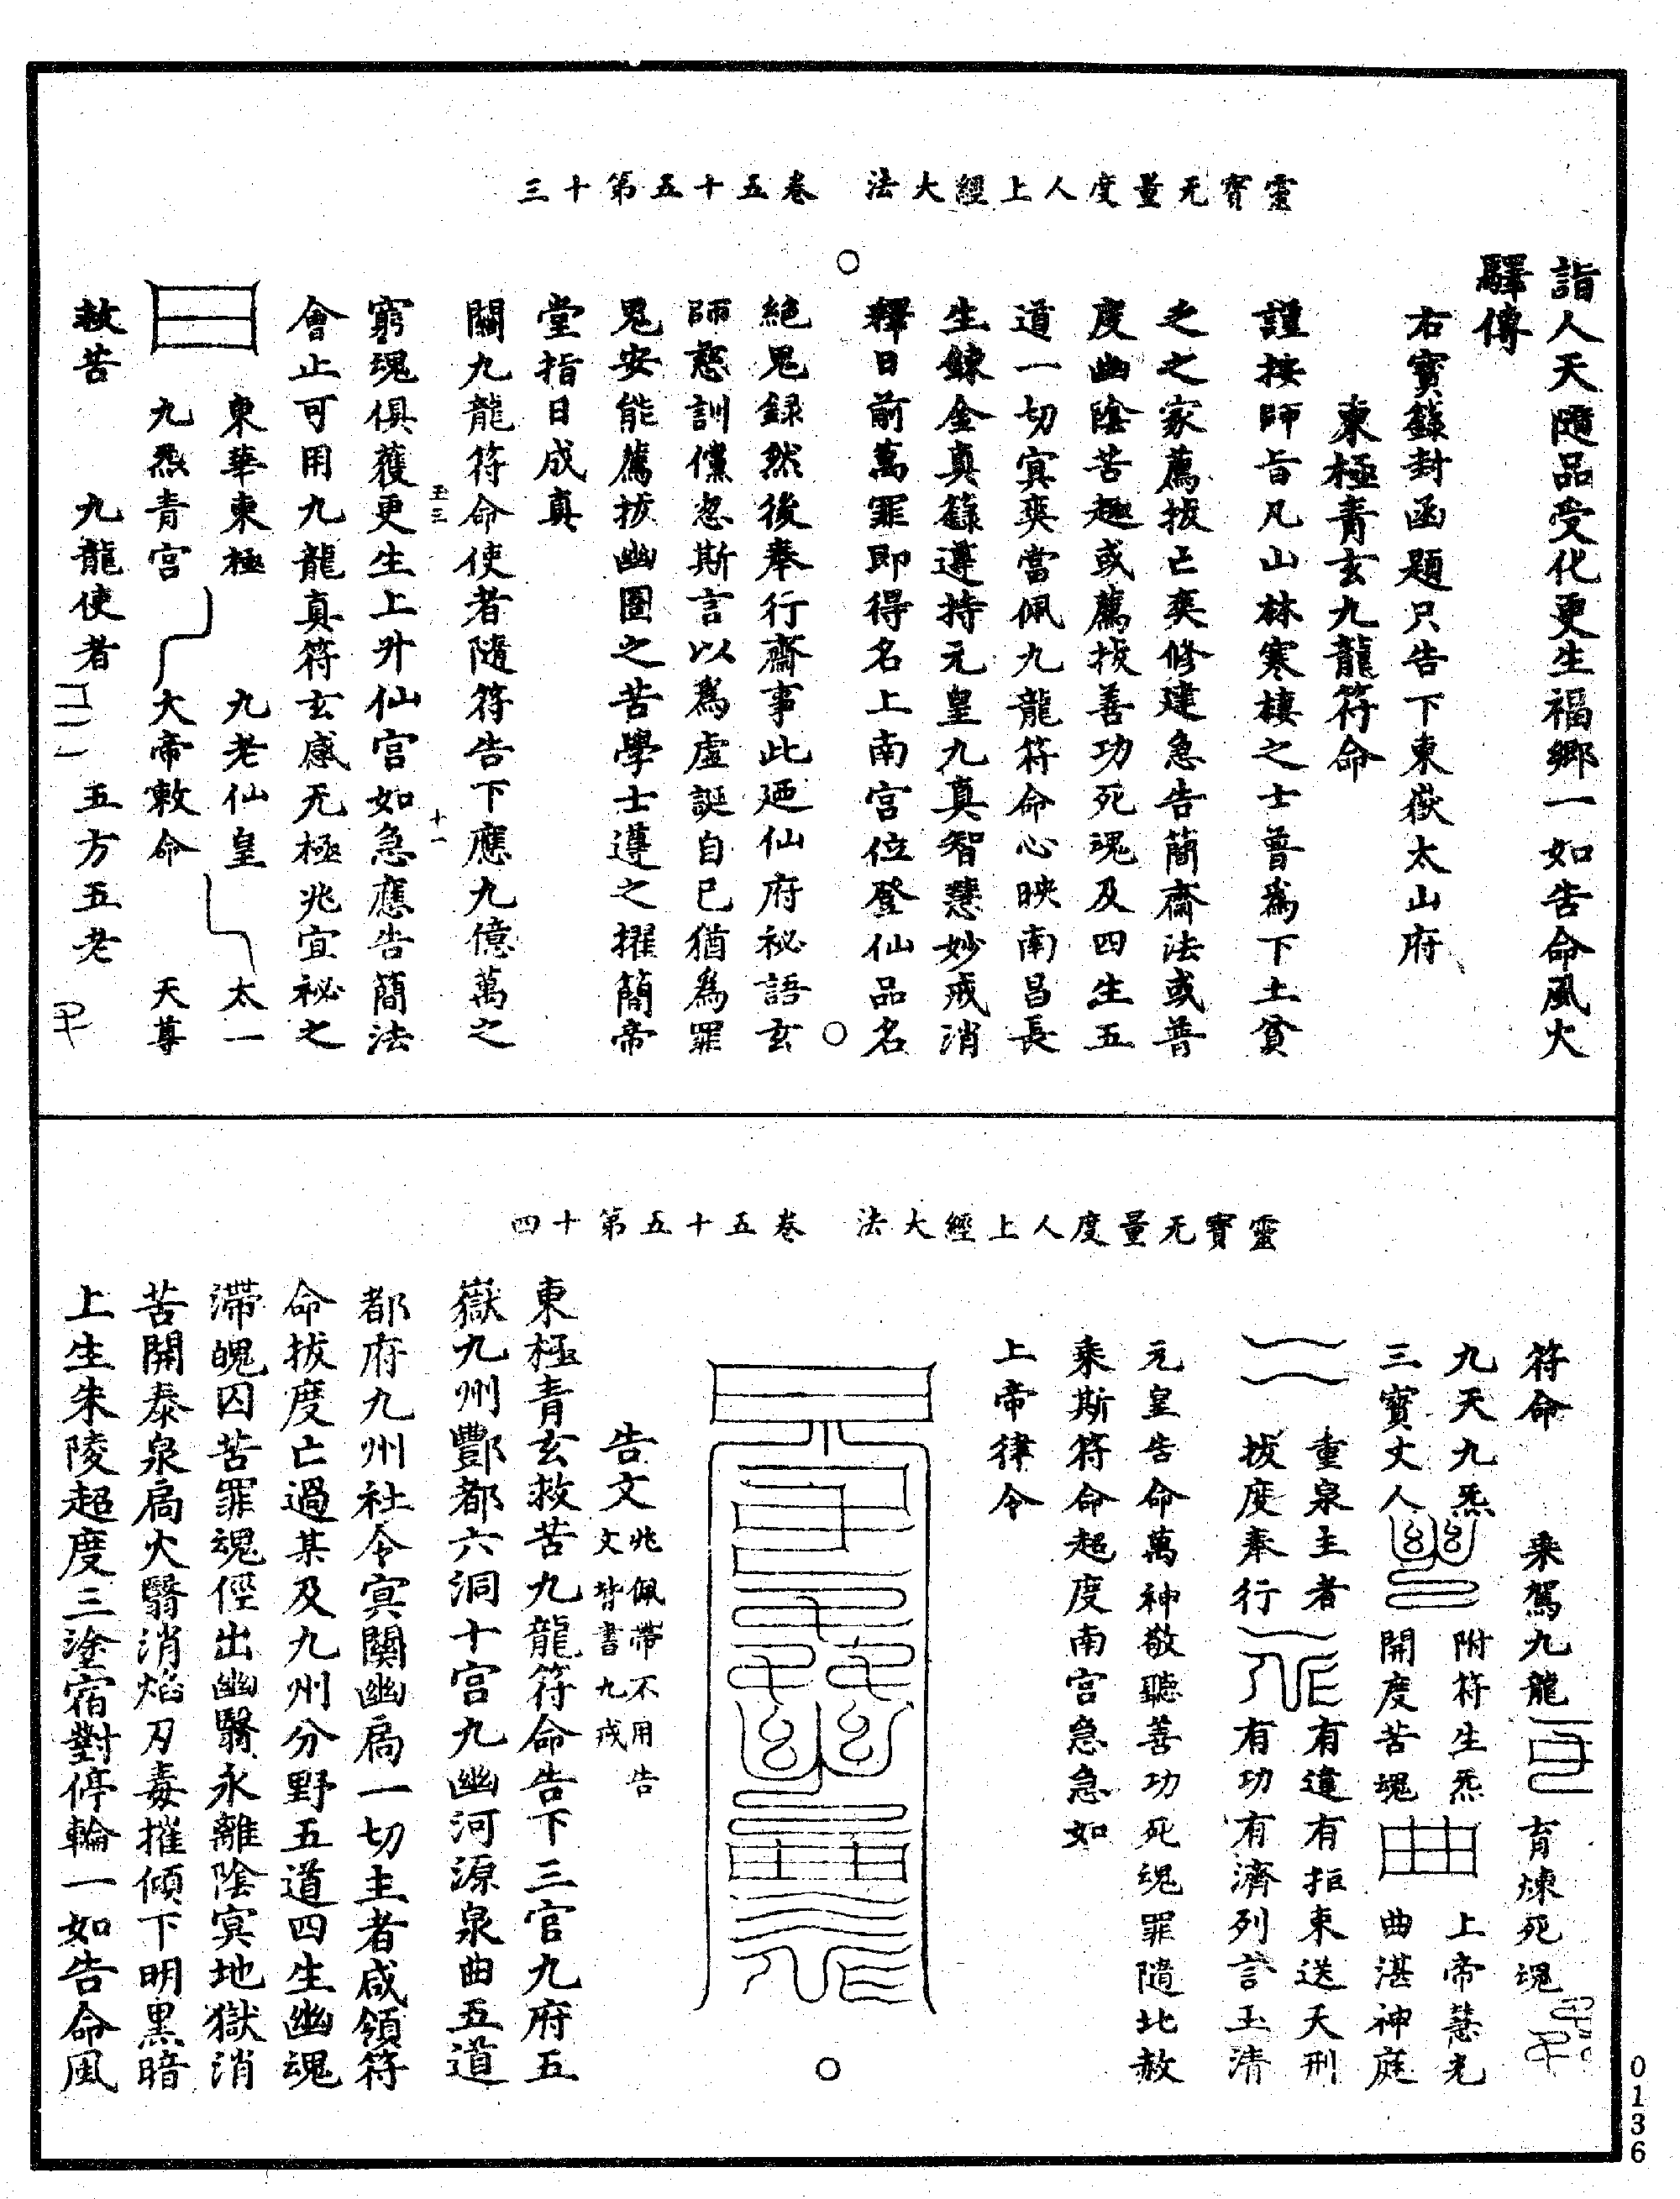 靈寶无量度人上經大法　卷五十五第十三
詣人天隨品受化更生福鄉一如告命風火
驛傳
右寶籙封函題只告下東嶽太山府
東極青玄九龍符命
謹按師旨凡山林寒棲之士曾為下土貧
乏之家薦拔亡爽修建急告簡齋法或普
度幽陰苦趣或薦拔善功死魂及四生五
道一切冥爽當佩九龍符命心映南昌長
生鍊金真籙遵持元皇九真智慧妙戒消
釋日前萬罪即得名上南宮位登仙品名
絕鬼録然後奉行齋事此廼仙府祕語玄
師慈訓儻忽斯言以為虛誕自已猶為罪
鬼安能薦拔幽圄之苦學士遵之擢簡帝
堂指日成真
關九龍符命使者隨符告下應九億萬之
玉三　十一
窮魂俱獲更生上升仙宮如急應告簡法
會止可用九龍真符玄感无極兆宜祕之
東華東極　九老仙皇　太一
九炁青宮　大帝敕命　天尊
救苦　九龍使者　五方五老
靈寶无量度人上經大法　卷五十五第十四
符命　乘駕九龍　育煉死魂
九天九炁　附符生炁　上帝慧光
三寶丈人　開度苦魂　曲湛神庭
重泉主者　有違有拒束送天刑
拔度奉行　有功有濟列言玉清
元皇告命萬神敬聽善功死魂罪隨北赦
乘斯符命超度南宮急急如
上帝律令
告文　兆佩帶不用告
文皆書九戒
東極青玄救苦九龍符命告下三官九府五
嶽九州酆都六洞十宮九幽河源泉曲五道
都府九州社令冥關幽扃一切主者咸領符
命拔度亡過某及九州分野五道四生幽魂
滯魄囚苦罪魂徑出幽翳永離陰冥地獄消
苦開泰泉扃火翳消焰刃毒摧傾下明黑暗
上生朱陵超度三塗宿對停輪一如告命風
0136